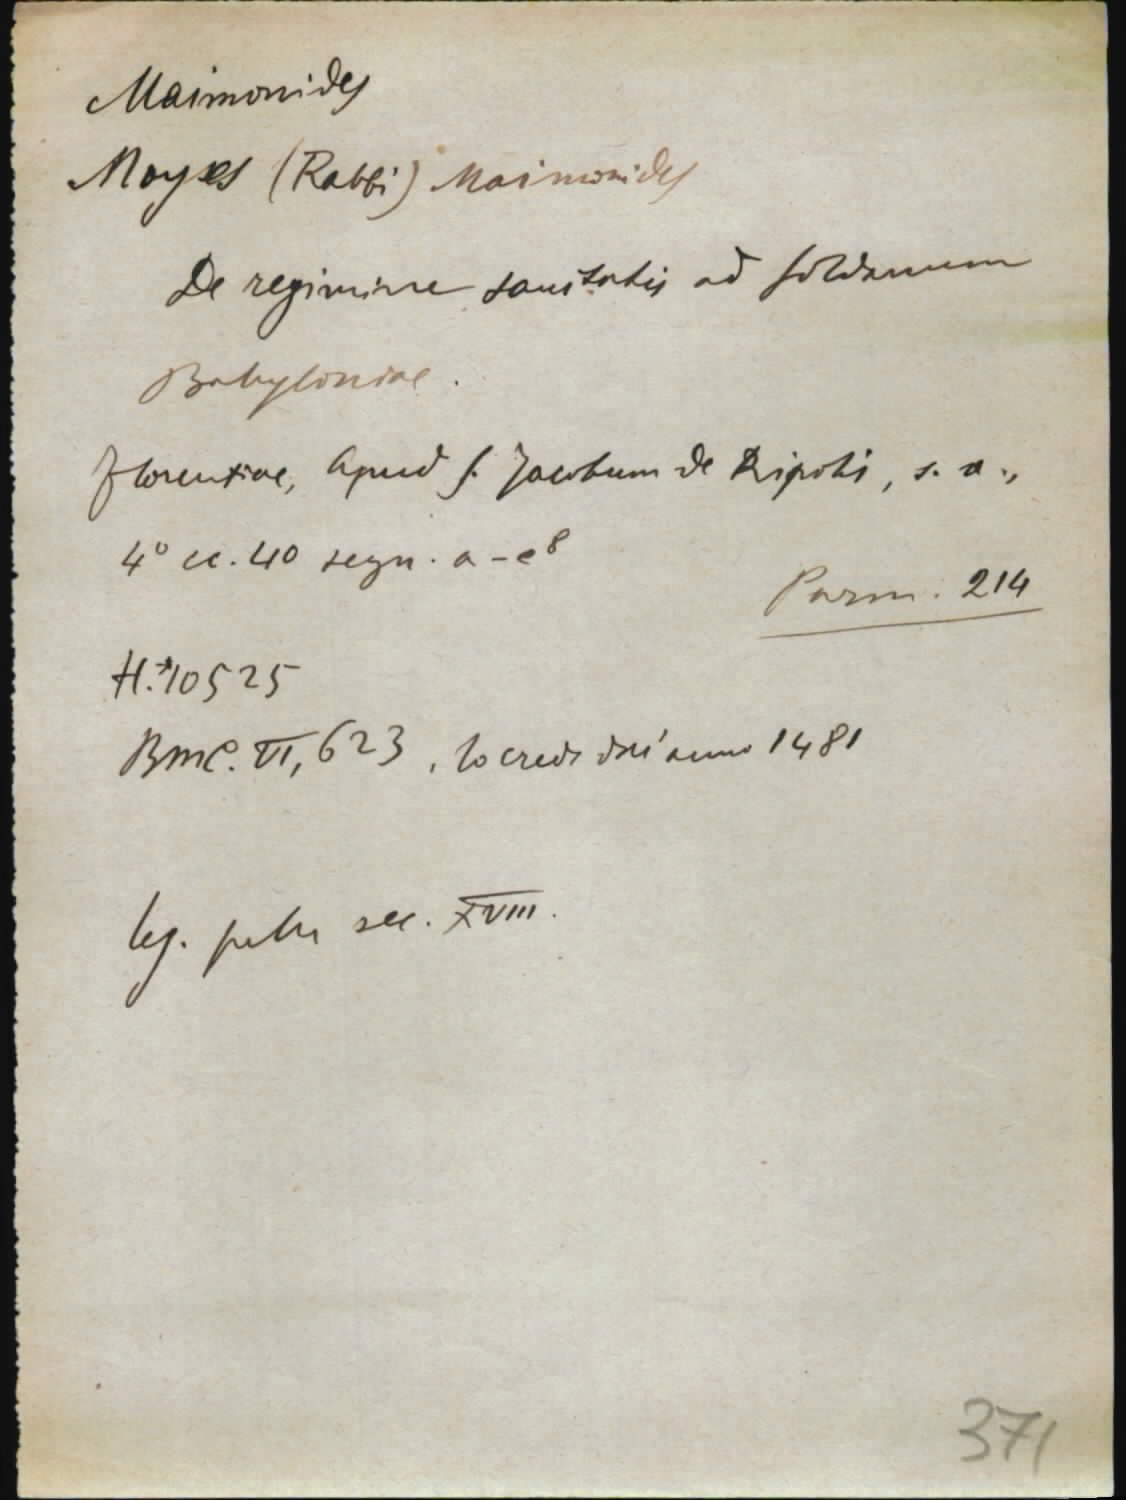 Maimonides
Moyses (Rabbi) Maimonides
De regimine sanitatis ad soldanum
Babyloniae.
Florentiae, Apud S. Jacobum de Ripolis, s. a.,
4° cc. 40 segn. a-e8
Parm. 214
H.*10525
BMC. VI, 623, lo crede del anno 1481
leg. pelle sec. XVIII.
371